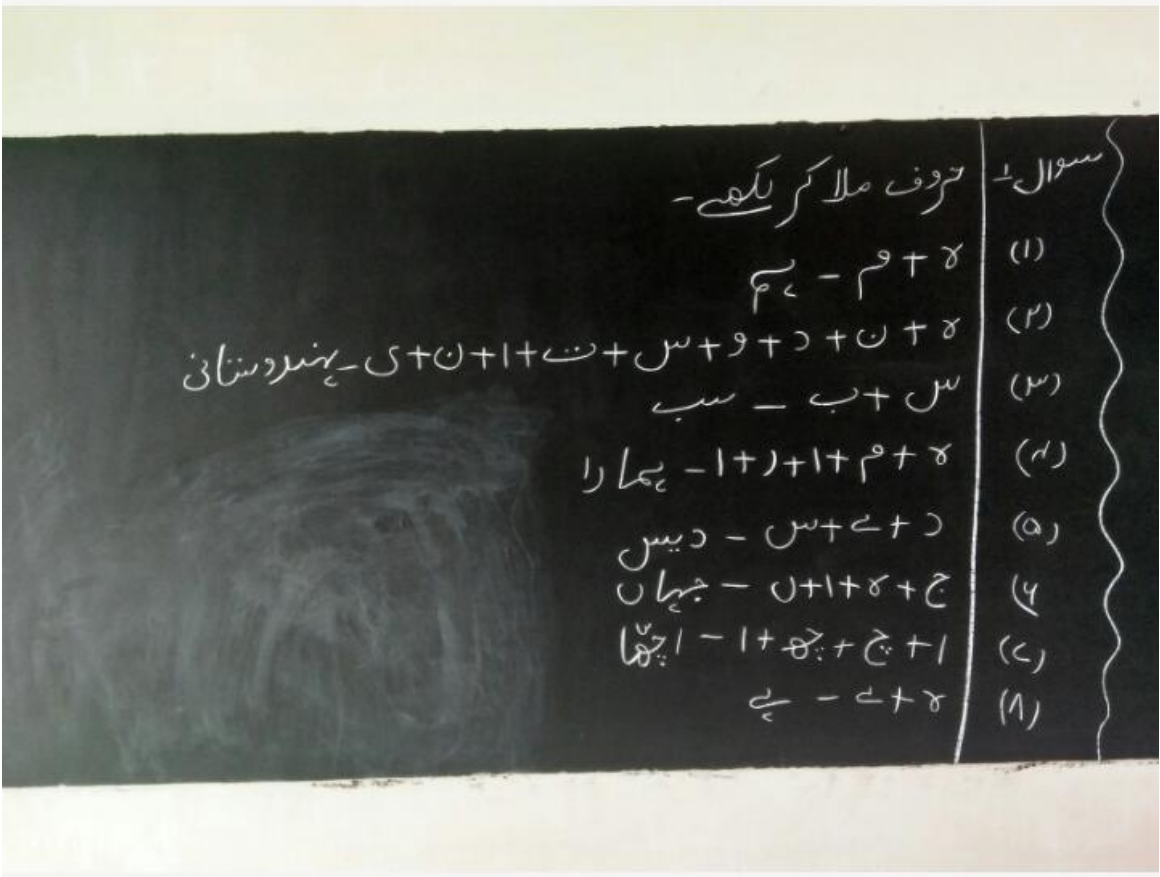 سوال ۱- حروف ملا کر لکھے -
(۱) ہ + م - ہم
(۲) ہ + ن + د + و + س + ت + ا + ن + ی - ہندوستانی
(۳) س + ب - سب
(۴) ہ + م + ا + ر + ا - ہمارا
(۵) د + ے + س - دیس
(۶) ج + ہ + ا + ں - جہاں
(۷) ا + چ + چھ + ا - اچھّا
(۸) ہ + ے - ہے